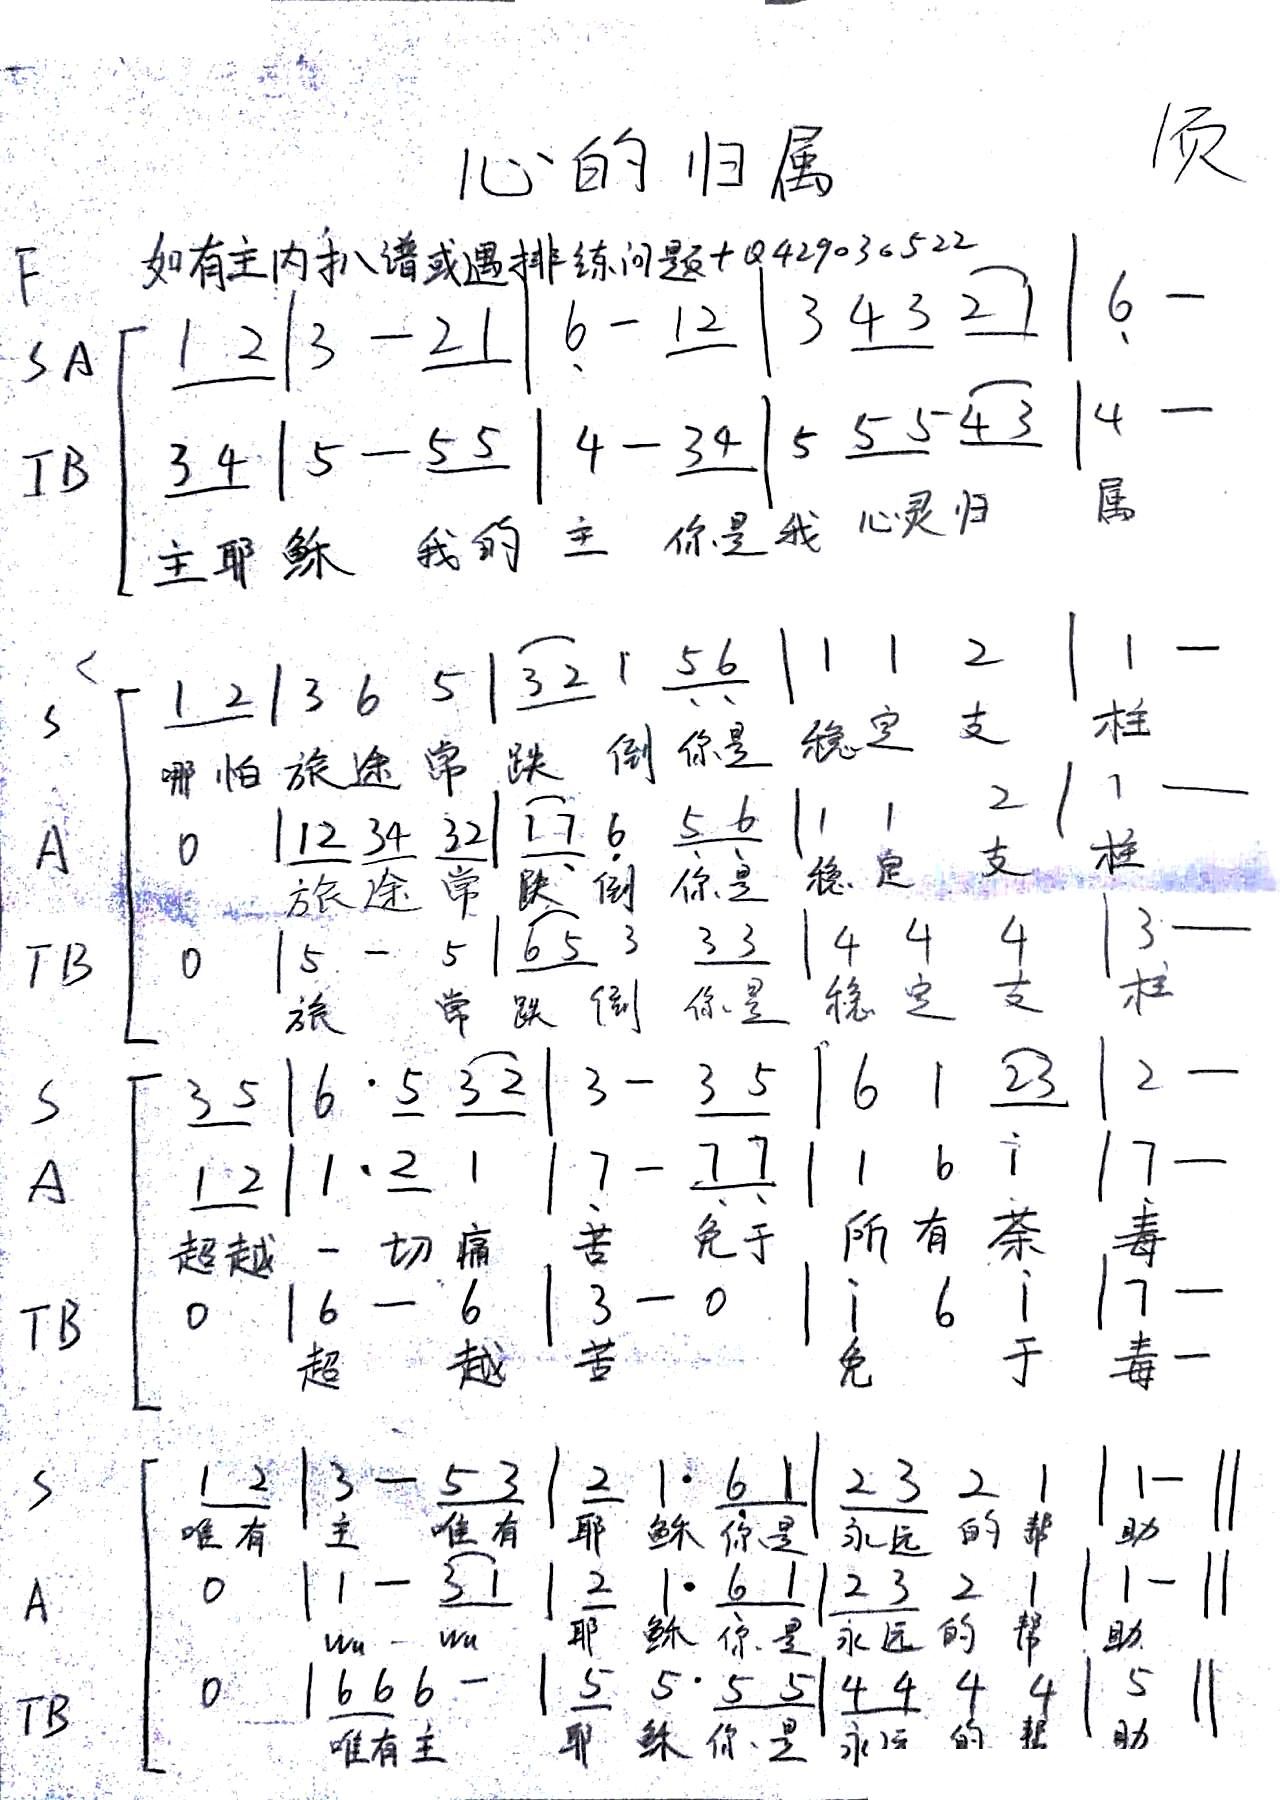 心的归属
1页
F
如有主内扒谱或遇排练问题+Q429036522
SA 1 2 | 3 — 2 1 | 6 — 1 2 | 3 4 3 2 1 | 6 —
TB 3 4 | 5 — 5 5 | 4 — 3 4 | 5 5 5 4 3 | 4 —
主耶稣 我的主 你是我 心灵归 属
S 1 2 | 3 6 5 | 3 2 1 5 6 | 1 1 2 | 1 —
哪怕旅途常跌 倒 你是 稳定 支 柱
A 0 | 1 2 3 4 3 2 | 1 7 6 5 6 | 1 1 2 | 1 —
旅途常 跌倒 你是 稳定 支 柱
TB 0 | 5 — 5 | 6 5 3 3 3 | 4 4 4 | 3 —
旅 常 跌 倒 你是 稳定 支 柱
S 3 5 | 6 · 5 3 2 | 3 — 3 5 | 6 1 2 3 | 2 —
A 1 2 | 1 · 2 1 | 7 — 7 7 | 1 6 i | 7 —
超越 一 切痛 苦 免于 所有荼 毒
TB 0 | 6 — 6 | 3 — 0 | i 6 i | 7 —
超 越 苦 免 于 毒 —
S 1 2 | 3 — 5 3 | 2 1 · 6 1 | 2 3 2 1 | 1 — ||
唯有 主 唯有 耶 稣 你是 永远 的 帮 助
A 0 | 1 — 3 1 | 2 1 · 6 1 | 2 3 2 1 | 1 — ||
wu wu 耶 稣 你是 永远 的 帮 助
TB 0 | 6 6 6 — | 5 5 · 5 5 | 4 4 4 4 | 5 ||
唯有主 耶 稣 你是 永远 的 帮 助